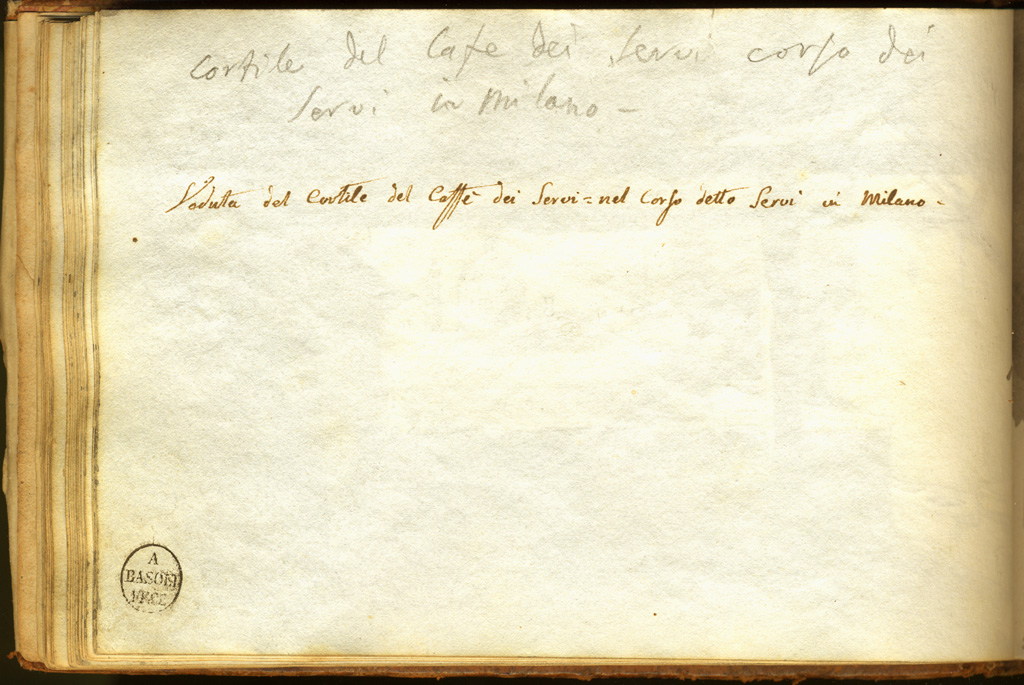 cortile del Cafe dei Servi corso dei
Servi in Milano -
Veduta del Cortile del Caffè dei Servi = nel Corso detto Servi in Milano -
A
BASOLI
FECE